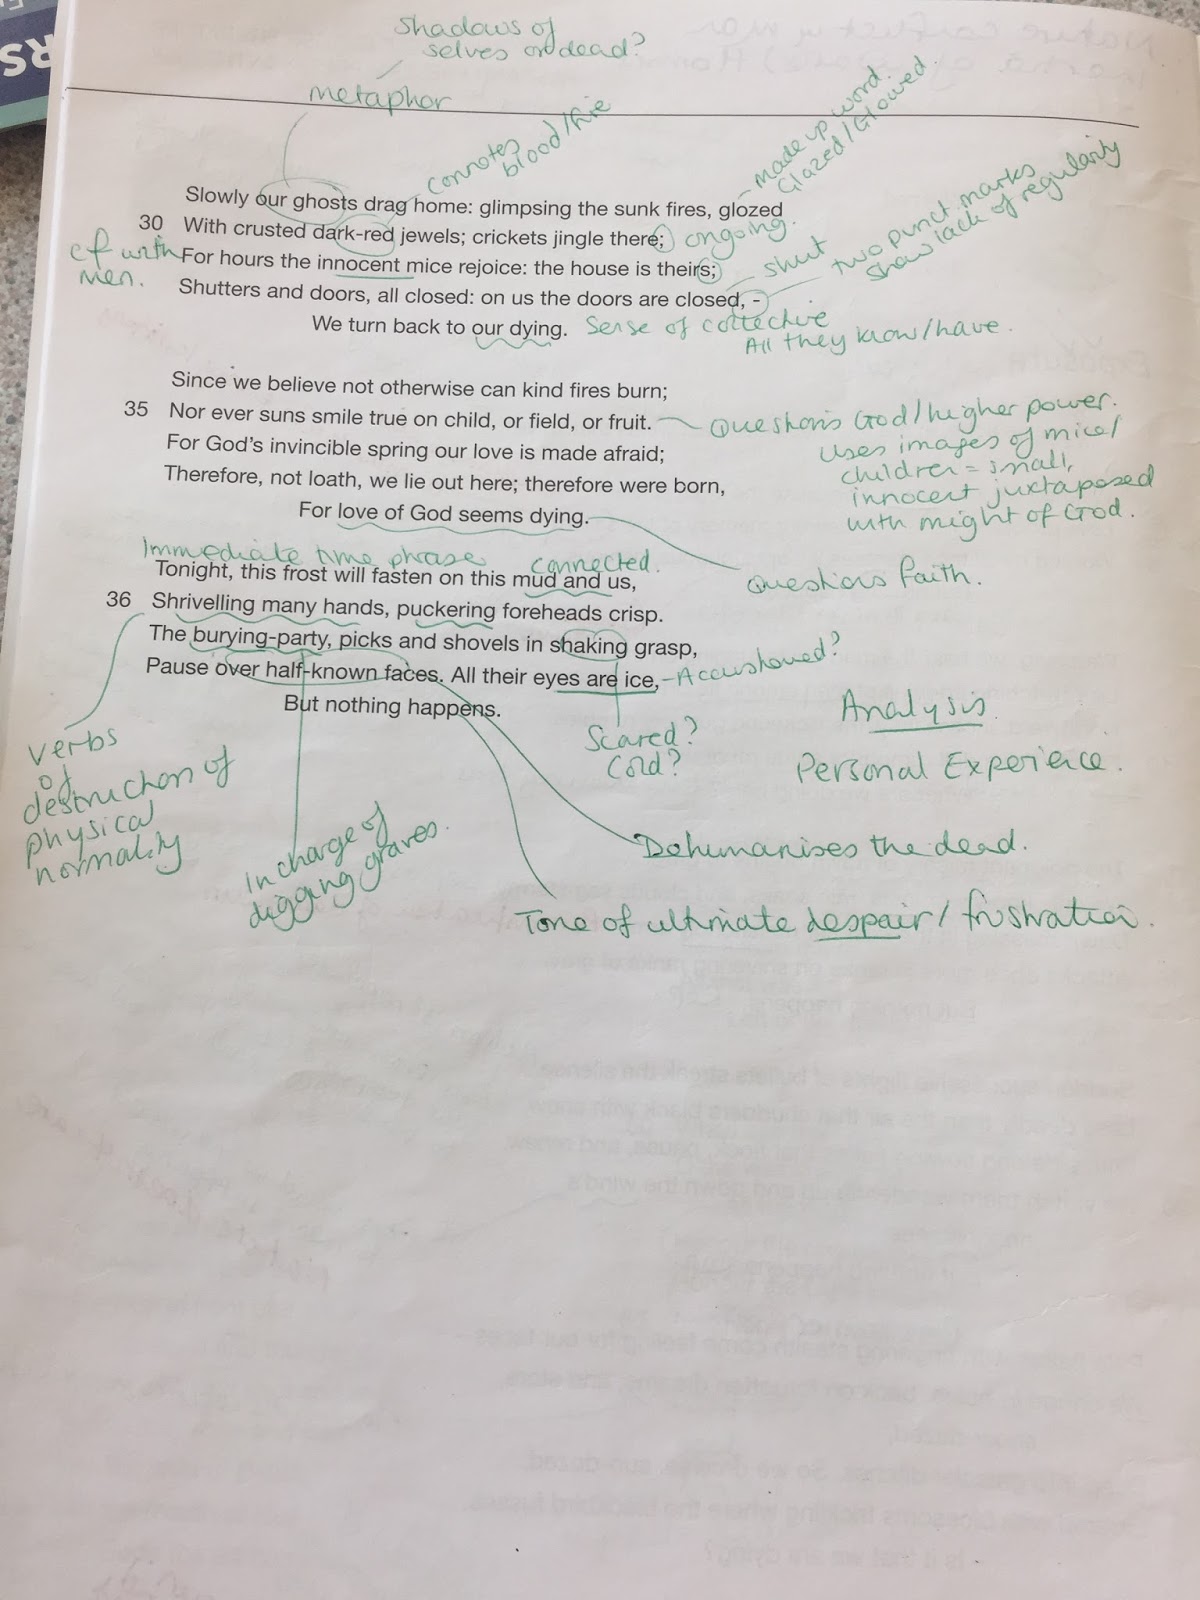 RS
Shadows of
selves or dead?
metaphor
connotes
blood/fire
made up word.
Glazed/Glowed.
Slowly our ghosts drag home: glimpsing the sunk fires, glozed
30 With crusted dark-red jewels; crickets jingle there;
ongoing.
For hours the innocent mice rejoice: the house is theirs;
cf with
men.
shut
two punct. marks
show lack of regularity
Shutters and doors, all closed: on us the doors are closed, -
We turn back to our dying.
Sense of collective
All they know/have.
Since we believe not otherwise can kind fires burn;
35 Nor ever suns smile true on child, or field, or fruit.
Questions God/higher power.
Uses images of mice/
children = small,
innocent juxtaposed
with might of God.
For God's invincible spring our love is made afraid;
Therefore, not loath, we lie out here; therefore were born,
For love of God seems dying.
Questions Faith.
Immediate time phrase
connected.
Tonight, this frost will fasten on this mud and us,
36 Shrivelling many hands, puckering foreheads crisp.
The burying-party, picks and shovels in shaking grasp,
Pause over half-known faces. All their eyes are ice,
-Accustomed?
But nothing happens.
Scared?
Cold?
Analysis
Personal Experience.
Verbs
of
destruction of
physical
normality
In charge of
digging graves.
Dehumanises the dead.
Tone of ultimate despair/frustration.